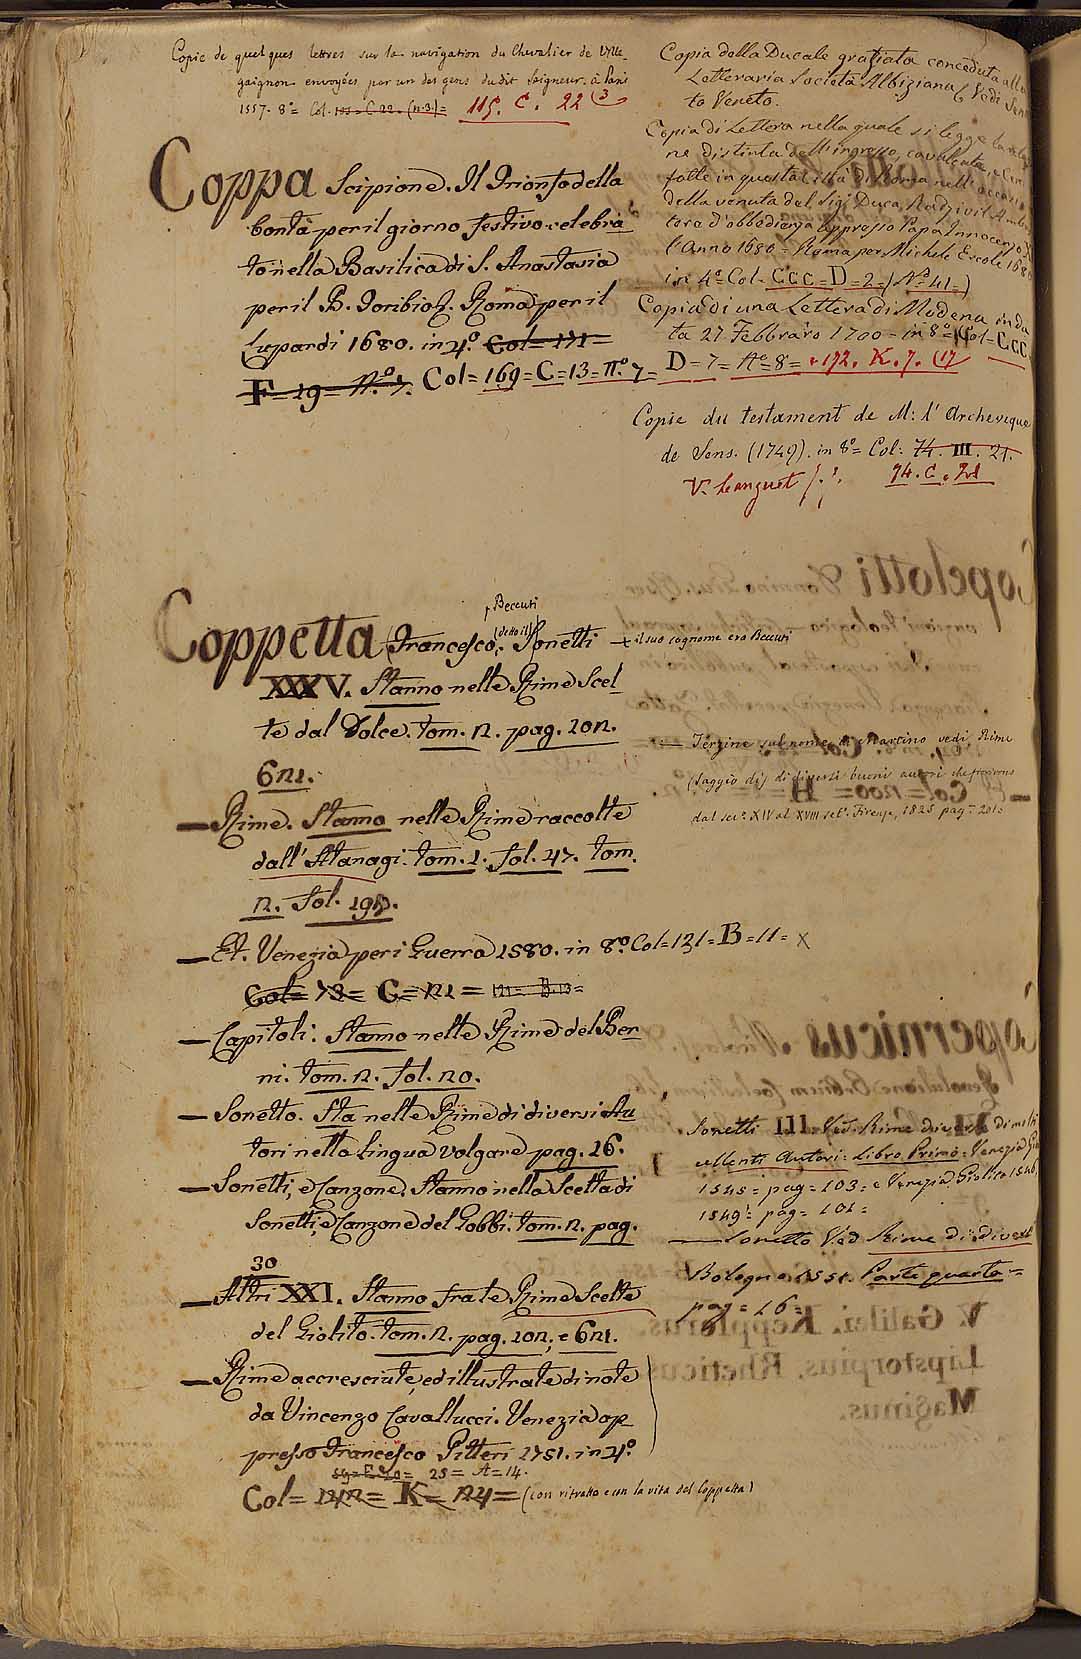 Copie de quelques lettres sur la navigation du Chevalier de Ville
gaignon envoyées par un des gens dudit Seigneur. à Paris
1557. 8º = Col. 103 = C 22. (n. 3.) = 115. C. 22 (3
Coppa Scipione. Il Trionfo della
bontà per il giorno festivo celebra
to nella Basilica di S. Anastasia
per il B. Toribio &. Roma per il
Lupardi 1680. in 4º. Col = 171 =
F = 19 = Nº. 7. Col = 169 = C = 13 = nº. 7 =
Coppetta (Francesco, (detto il) Sonetti + il suo cognome era Beccuti
Beccuti
XXXV. Stanno nelle Rime Scel
te dal Dolce. tom. 2. pag. 202.
621.
— Rime. Stanno nelle Rime raccolte
dall'Atanagi. tom. 1. fol. 47. tom.
2. fol.
— Et. Venezia per i Guerra 1580. in 8º. Col = 121 = B = 11 = X
Col = 73 = C = 121 = 121 = B. 13 =
— Capitoli. Stanno nelle Rime del Ber
ni. tom. 2. fol. 20.
— Sonetto. Sta nelle Rime di diversi Au
tori nella lingua volgare pag. 16.
— Sonetti, e Canzone. Stanno nella Scelta di
Sonetti, e Canzone del Gobbi. tom. 2. pag.
30
— Altri XXI. Stanno fra le Rime Scelte
del Giolito. tom. 2. pag. 202, e 621.
— Rime accresciute, ed illustrate di note
da Vincenzo Cavallucci. Venezia ap
presso Francesco Pitteri 1751. in 4º.
25 = A = 14.
Col = 142 = K = 24 = (con ritratto e con la vita del Coppetta)
Copia della Ducale graziata conceduta alla
Letteraria Società Albiziana (Vedi Sena
to Veneto.
Copia di Lettera nella quale si legge la relazio
ne distinta dell'ingresso, cavalcate, e
fatte in questa Città di Roma nell'occasio
della venuta del Sigr Duca Radzivil Amba
tore d'obbedienza appresso Papa Innocenzo X
l'Anno 1680 = Roma per Michele Ercole 1680
in 4º Col = CCC = D = 2 = (Nº 41 =)
Copia di una Lettera di Modena in da
ta 27 Febbraro 1700 = in 8º = Col = CCC
D = 7 = Nº 8 = 172. K. 7. (17
Copie du testament de M: l'Archeveque
de Sens. (1749). in 8º = Col: 74. III. 21.
V. Languet 94. C.
— Terzine sul nome di Martino vedi Rime
(Saggio di) di diversi buoni autori che fiorirono
dal sec. XIV al XVIII sec. Firenze, 1825 pag.
Sonetti III. Ved. Rime diverse di molti
ecellenti Autori = Libro Primo = Venezia Gio
1545 = pag = 103 = e Venezia, Giolito 1546,
1549 = pag = 101 =
— Sonetto Ved Rime di divers
Bologna 1551. Parte quarta =
pag = 16 =